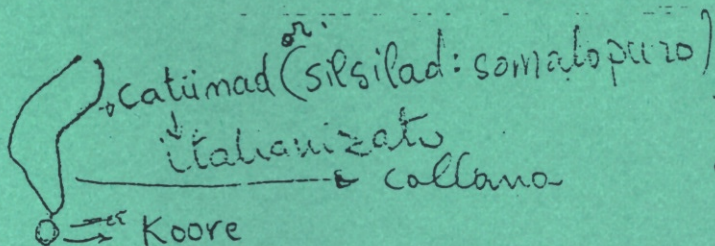 or:
catiinad (silsilad: somalo puro)
italianizato
collana
Koore